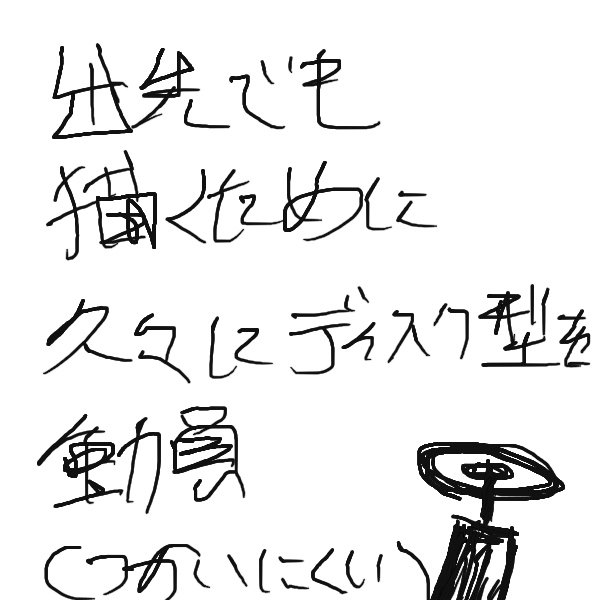 出先でも
描くために
久々にディスク型を
動員
(つかいにくい)